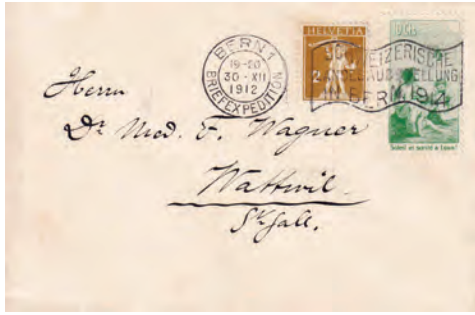 BERN 1
19-20
30·XII
1912
BRIEFEXPEDITION
HELVETIA
2
10 Cts.
SCHWEIZERISCHE
LANDESAUSSTELLUNG
IN BERN 1914
Herrn
Dr Med. F. Wagner
Wattwil
St. Gall.